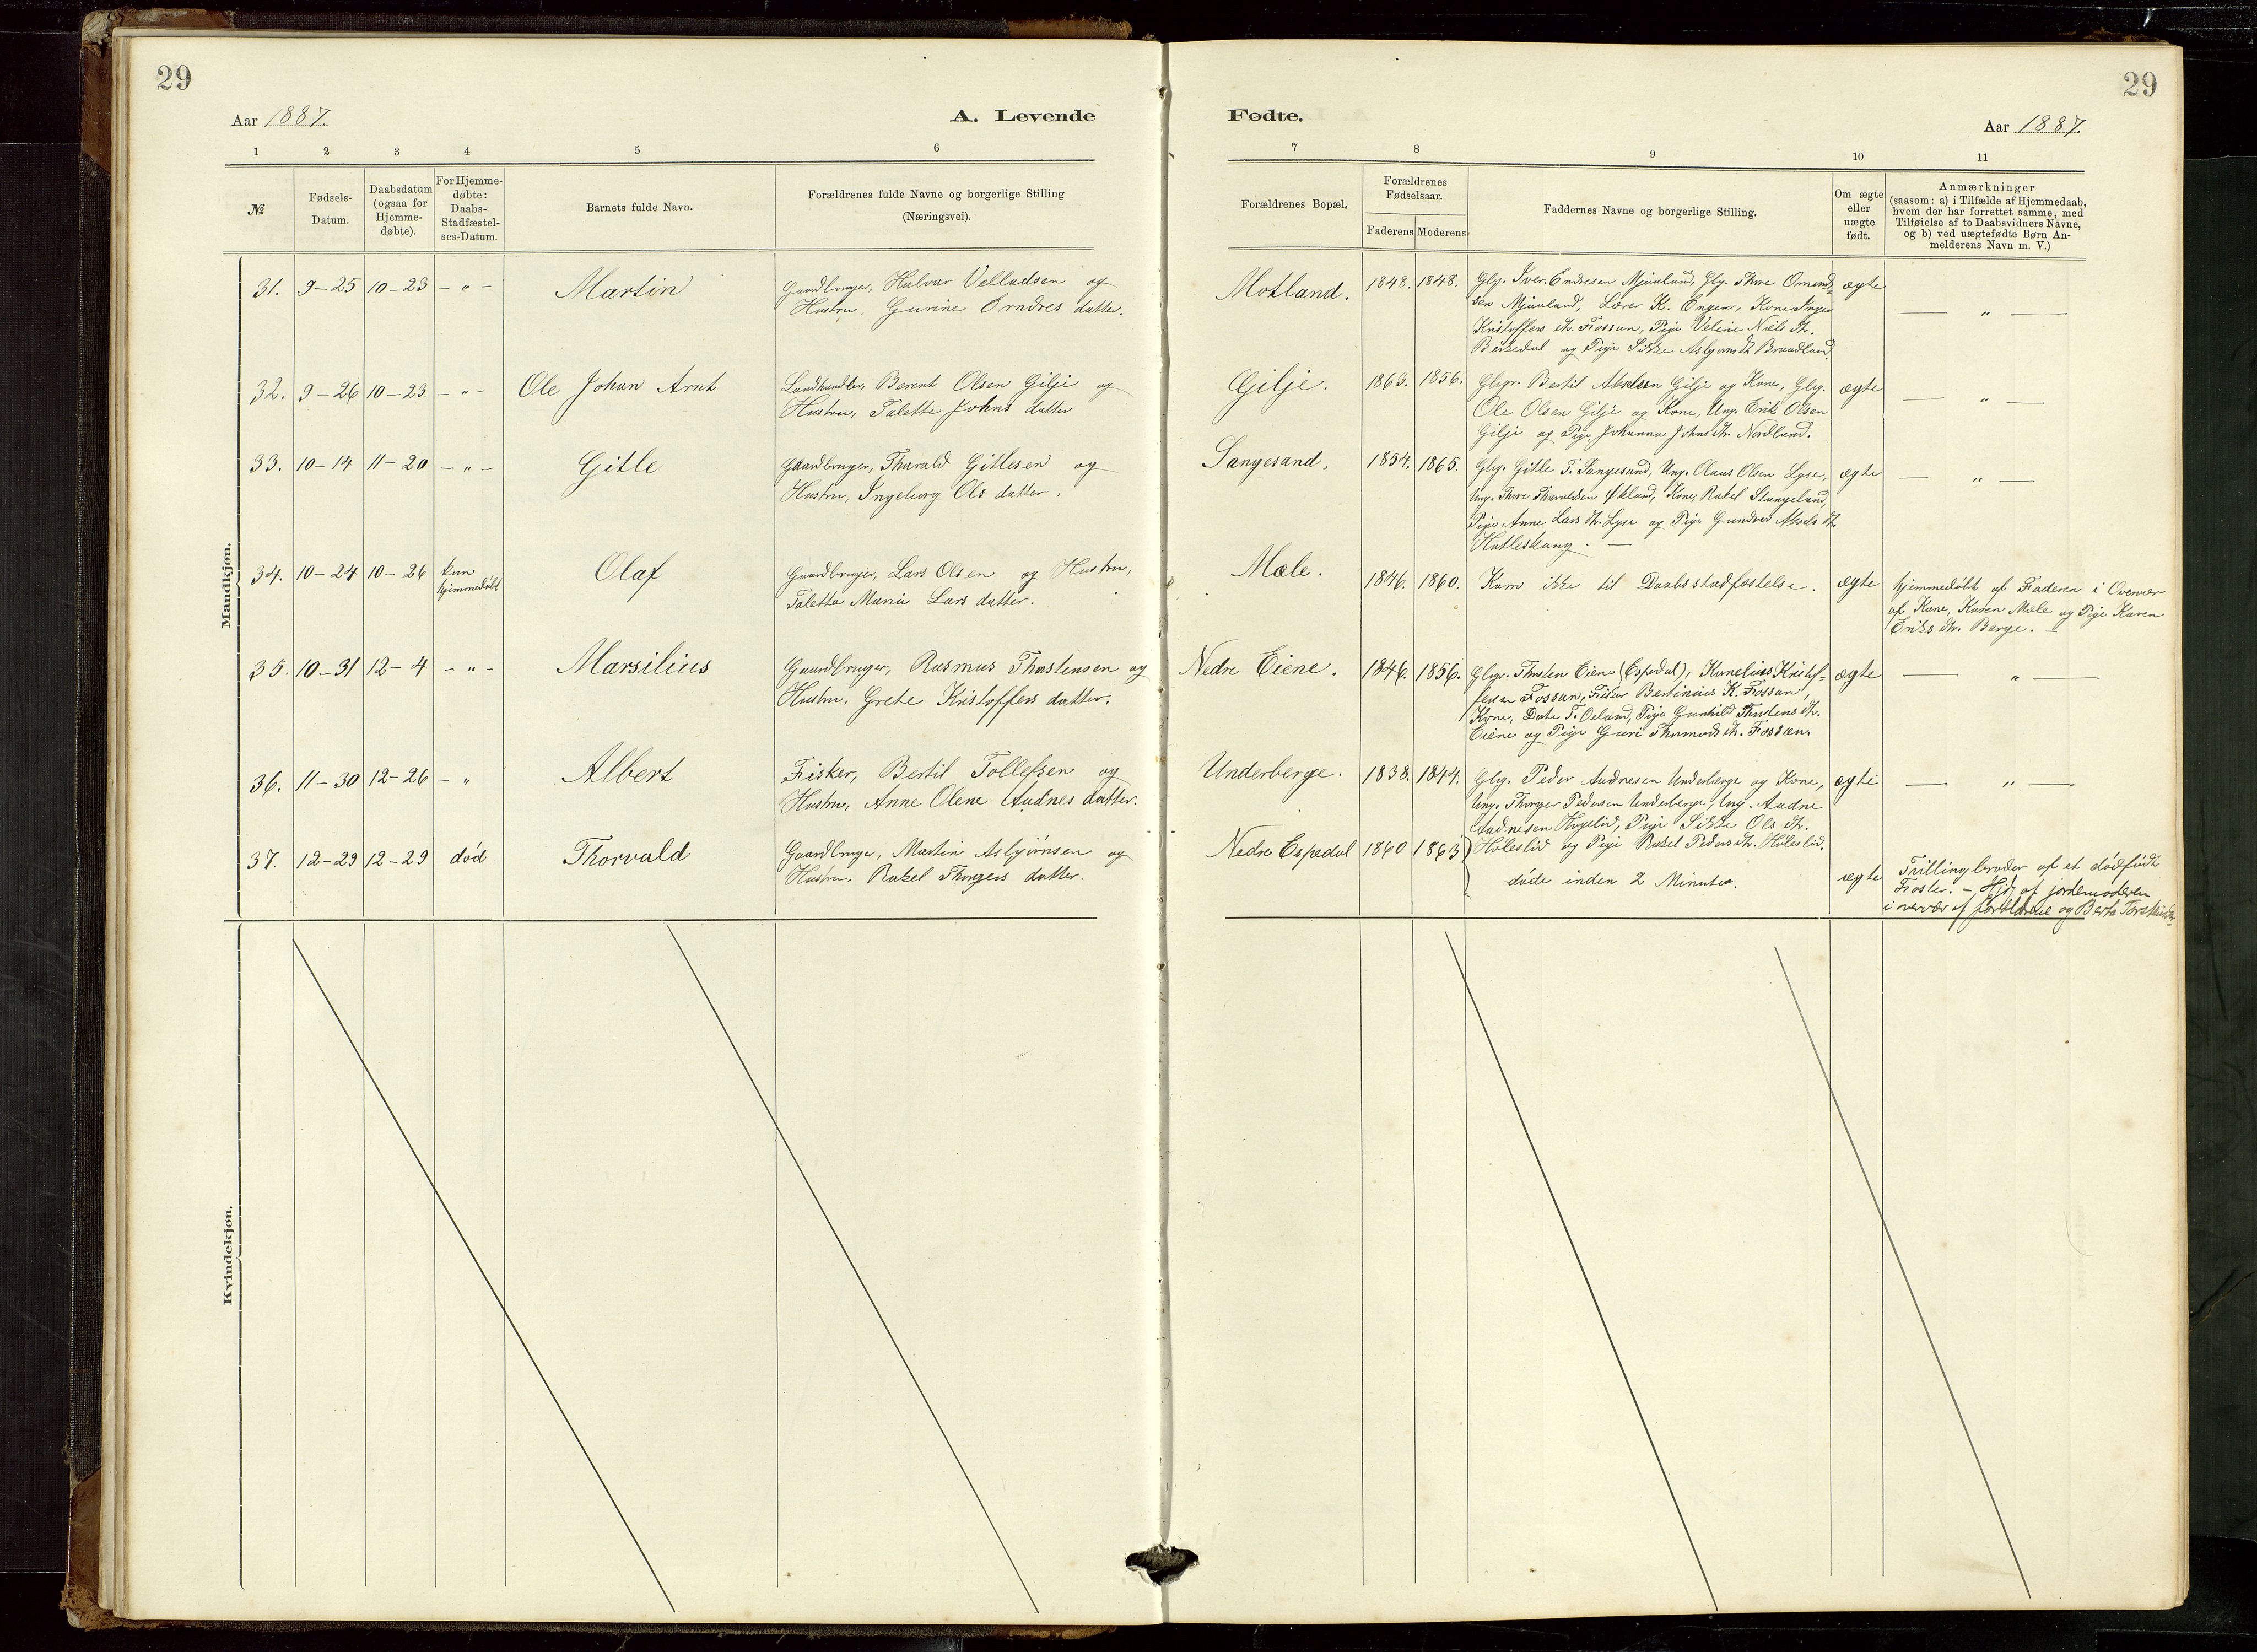 29
Aar 1887.
A. Levende
1 2 3 4 5 6
№
Fødsels-
Datum.
Daabsdatum
(ogsaa for
Hjemme-
døbte).
For Hjemme-
døbte:
Daabs-
Stadfæstel-
ses-Datum.
Barnets fulde Navn.
Forældrenes fulde Navne og borgerlige Stilling
(Næringsvei).
Mandkjøn.
31. 9-25 10-23 - " - Martin
Gaardbruger, Halvar Velladsen og
Hustru, Gurine datter.
32. 9-26 10-23. - " - Ole Johan Arnt
Landhandler, Berent Olsen Gilje og
Hustru, Talette Johns datter
33. 10-14 11-20 - " - Gitle
Gaardbruger, Tharald Gitlesen og
Hustru, Ingeborg Ols datter.
34. 10-24 10-26 kun
hjemmedøbt
Olaf
Gaardbruger, Lars Olsen og Hustru,
Taletta Maria Lars datter.
35. 10-31 12-4 - " - Marsilius
Gaardbruger, Rasmus Thorstensen og
Hustru, Grete Kristoffers datter.
36. 11-30 12-26 - " Albert
Fisker, Bertil Tollefsen og
Hustru, Anne Olene Audnes datter.
37. 12-29 12-29 død Thorvald
Gaardbruger, Martin Asbjørnsen og
Hustru, Rakel Thorgers datter.
Kvindekjøn.
29
Fødte.
Aar 1887.
7 8 9 10 11
Forældrenes Bopæl.
Forældrenes
Fødselsaar.
Faderens Moderens
Faddernes Navne og borgerlige Stilling.
Om ægte
eller
uægte
født.
Anmærkninger
(saasom: a) i Tilfælde af Hjemmedaab,
hvem der har forrettet samme, med
Tilføielse af to Daabsvidners Navne,
og b) ved uægtefødte Børn An-
melderens Navn m. V.)
Motland. 1848. 1848. Gbg. Iver Endresen Mjaaland, Gbg. Thore Omund- ægte
sen Mjaaland, Lærer K. Engen, Kone Inger
Kristoffers dtr. Fossan, Pige Velene Niels dtr.
Birkedal og Pige Sikke Asbjørns dt. Braadland.
— " —
Gilje. 1863. 1856. Gbgr. Bertil Gilje og Kone, Gbg. ægte
Ole Olsen Gilje og Kone, Ung. Erik Olsen
Gilje og Pige, Johanna Johns dtr. Nordland.
— " —
Sangesand. 1854. 1865. Gbg. Gitle T. Sangesand, Ung. Claus Olsen Lyse, ægte
Ung. Thore Tharaldsen Økland, Kone, Rakel Stangeland,
Pige Anne Lars dtr. Lyse og Pige Gundvor Aksels dtr.
Hatleskaug. —
— " —
Mæle. 1846. 1860. Kom ikke til Daabsstadfæstelse. ægte
hjemmedøbt af Faderen i Overvær
af Kone, Karen Mæle og Pige Karen
Eriks dtr. Berge. —
Nedre Eiene. 1846. 1856. Gbgr. Thosten Eiene (Espedal), Kornelius Kristof- ægte
fersen Fossan, Fisker Bertinius K. Fossan,
Kone, Dorte T. Oeland, Pige Gunhild Thostens dtr.
Eiene og Pige Guri Thormods dt. Fossan.
— " —
Underberge. 1838. 1844. Gbg. Peder Audnesen Underberge og Kone, ægte
Ung. Thorger Pedersen Underberge, Ung. Audne
Audnesen Høleslid, Pige Sikke Ols dtr.
Høleslid og Pige Rakel Peders dtr. Høleslid.
— " —
Nedre Espedal 1860 1863
døde inden 2 Minuter. ægte
Trillingbroder af et dødfødt
Foster. — Hjd. af jordemoderen
i overvær af forældrene og Berta